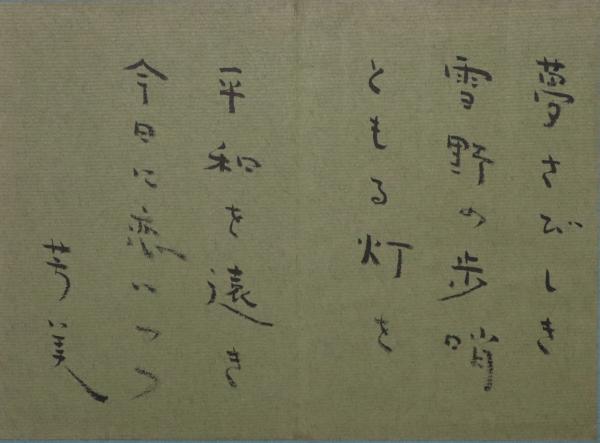 夢さびしき
雪野の歩哨
ともる灯を
平和を遠き
今日に戀ひつつ
芳美